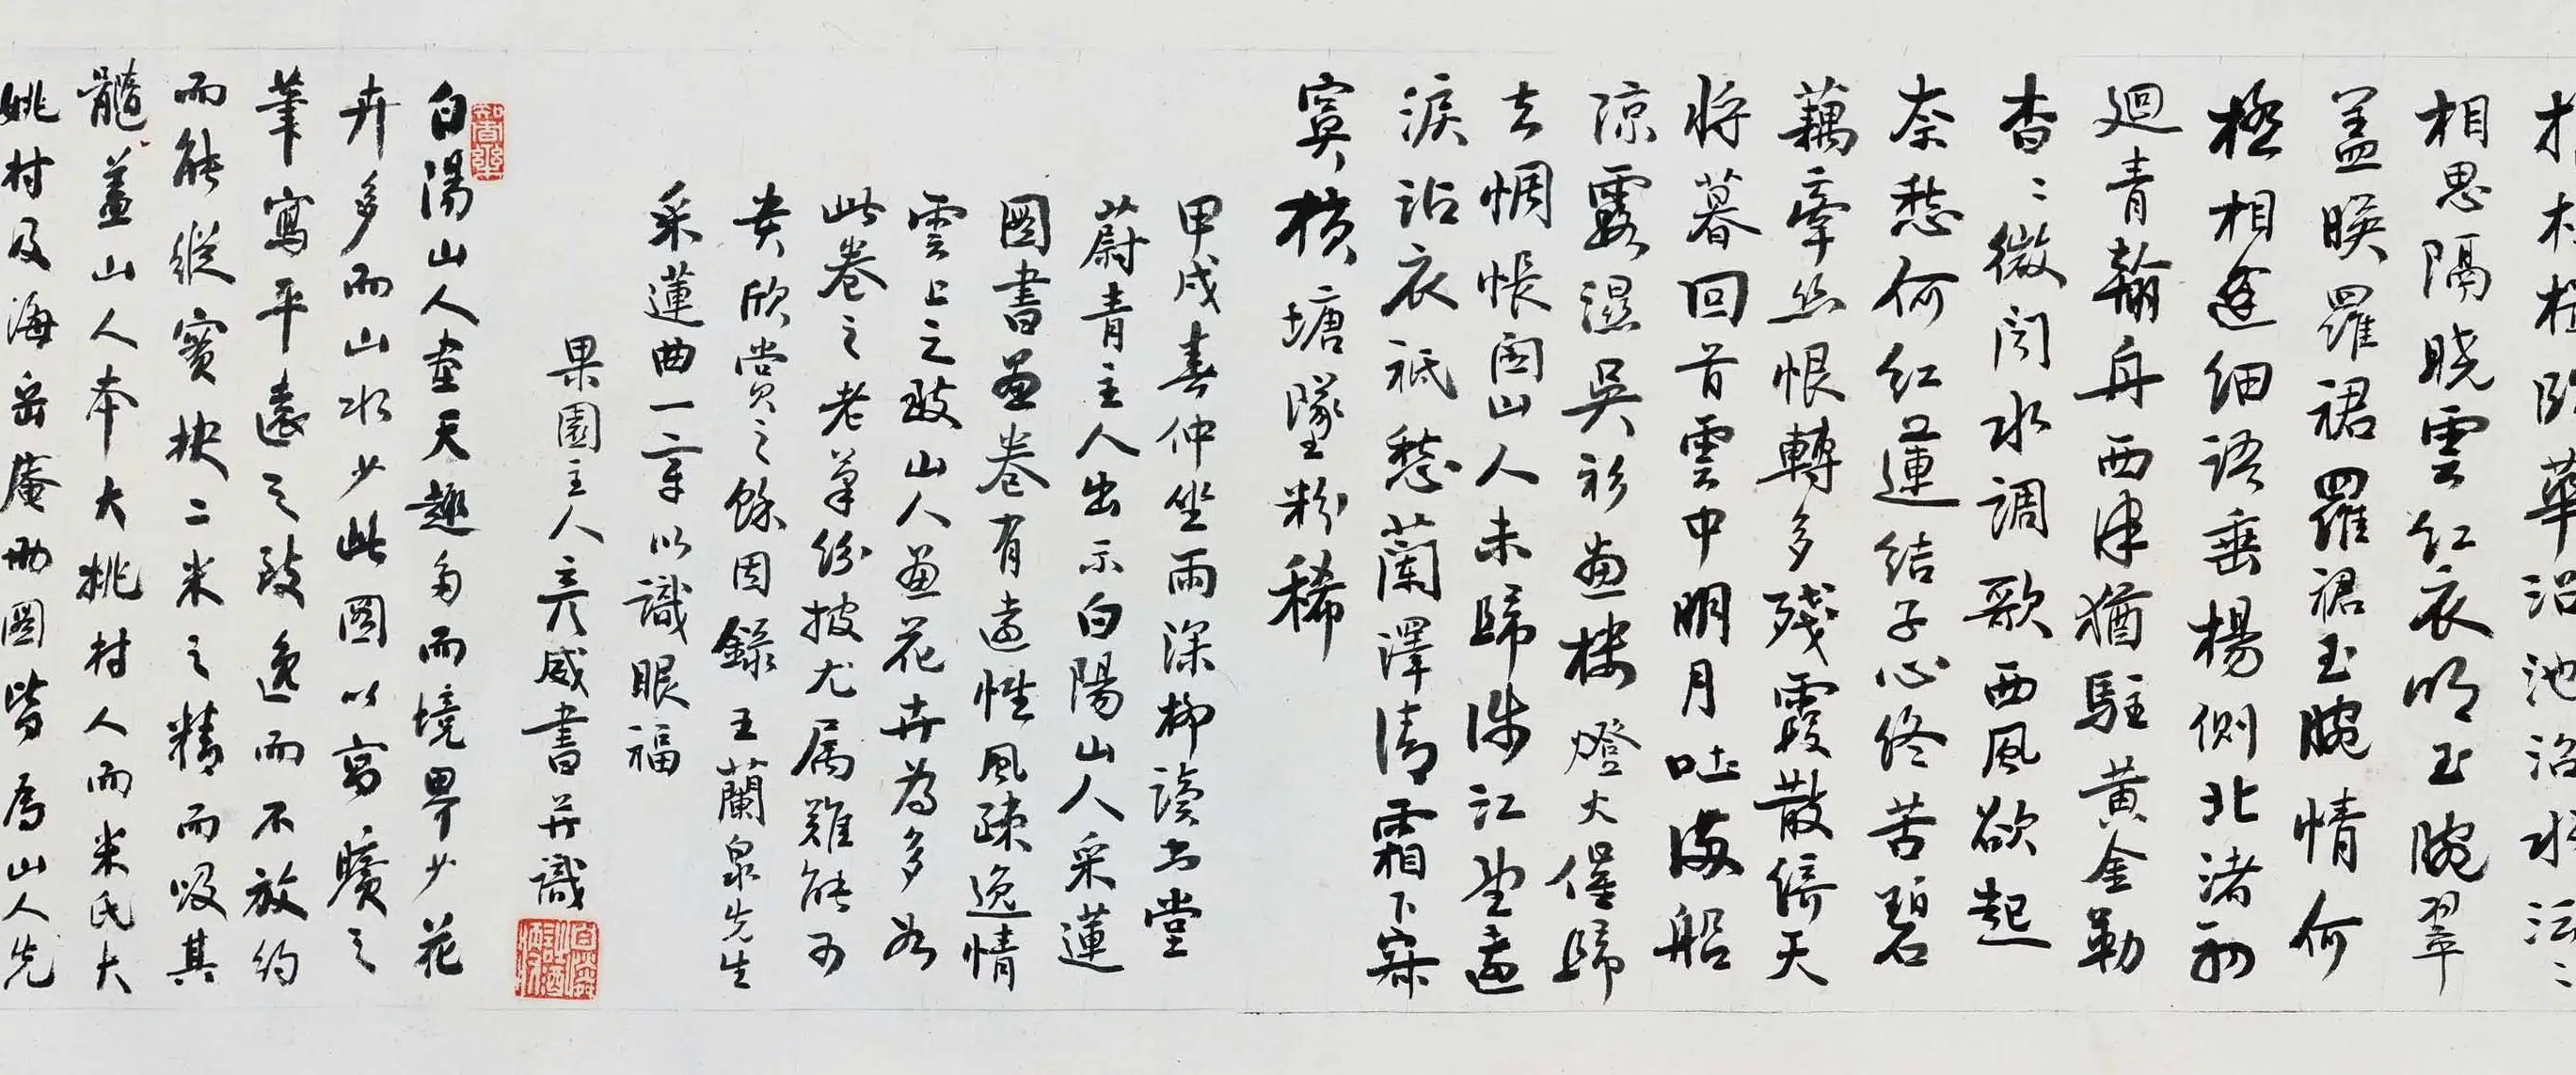 相思隔晓雲紅衣明玉腕翠
蓋暎羅裙羅裙玉腕情何
極相逢細語垂楊側北渚初
迴青翰舟西津猶駐黃金勒
杳〻微闻水調歌西風欲起
奈愁何紅蓮結子心終苦碧
藕牽絲恨轉多殘霞散綺天
将暮回首雲中明月吐海船
凉露濕吴衫畫楼燈火催歸
去惆悵囱山人未歸涉江望遠
淚沾衣祇愁蘭澤清霜下寂
寞横塘墜粉稀
甲戌春仲坐雨深柳讀书堂
蔚青主人出示白陽山人采蓮
圖書畫卷有遠性風疎逸情
雲上之致山人畫花卉為多如
此卷之老筆紛披尤属難能可
贵欣赏之餘因錄王蘭泉先生
采蓮曲一章以識眼福
果園主人彦咸書并識
白陽山人畫天趣多而境界少花
卉多而山水少此圖以高曠之
筆寫平遠之致逸而不放约
而能縱實抉二米之精而吸其
髓盖山人本大姚村人而米氏大
姚村及海岳庵册圖皆為山人先